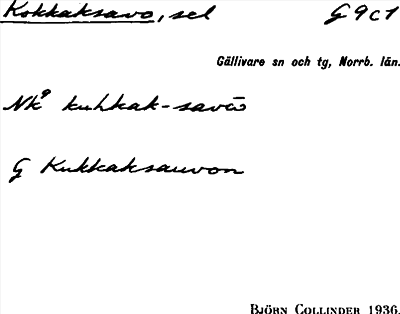 Kokkaksavo, sel G 9 c 1
Gällivare sn och tg, Norrb. län.
Nk⁹ kuhkak-savō
G Kukkaksauvon
BJÖRN COLLINDER 1936.